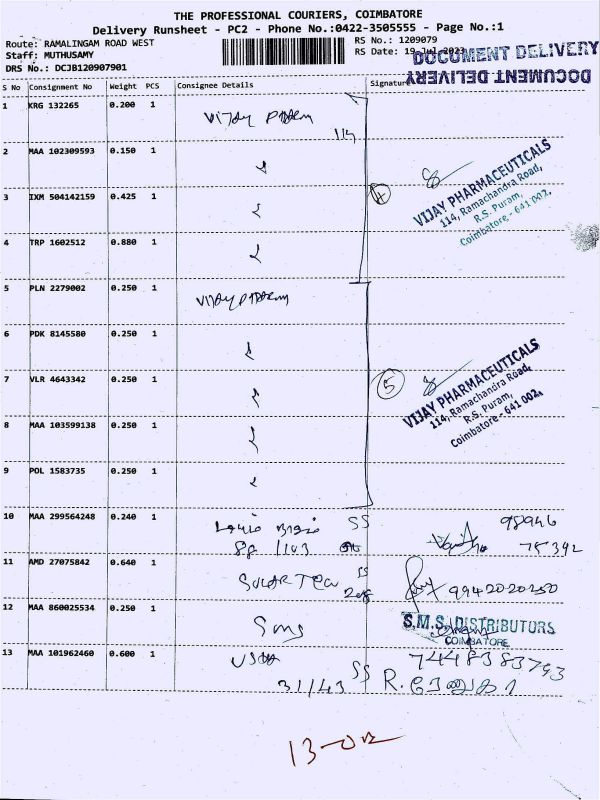 THE PROFESSIONAL COURIERS, COIMBATORE
Delivery Runsheet - PC2 - Phone No.:0422-3505555 - Page No.:1
Route: RAMALINGAM ROAD WEST
RS No.: 1209079
Staff: MUTHUSAMY
RS Date: 19-Jul-2023
DOCUMENT DELIVERY
DRS No.: DCJB120907901
DOCUMENT DELIVERY
S No Consignment No Weight PCS Consignee Details Signature
1 KRG 132265 0.200 1
114
2 MAA 102309593 0.150 1
3 IXM 504142159 0.425 1
4
VIJAY PHARMACEUTICALS
114, Ramachandra Road,
R.S. Puram,
Coimbatore - 641 002.
4 TRP 1602512 0.880 1
5 PLN 2279002 0.250 1
6 PDK 8145580 0.250 1
7 VLR 4643342 0.250 1
5
VIJAY PHARMACEUTICALS
114, Ramachandra Road,
R.S. Puram,
Coimbatore - 641 002.
8 MAA 103599138 0.250 1
9 POL 1583735 0.250 1
10 MAA 299564248 0.240 1
SS 98946
75392
11 AMD 27075842 0.640 1
SS 9942020250
12 MAA 860025534 0.250 1
Sms
S.M.S. DISTRIBUTORS
COIMBATORE
13 MAA 101962460 0.600 1
Usha
7448383793
31/43 SS R. ரேணுகா